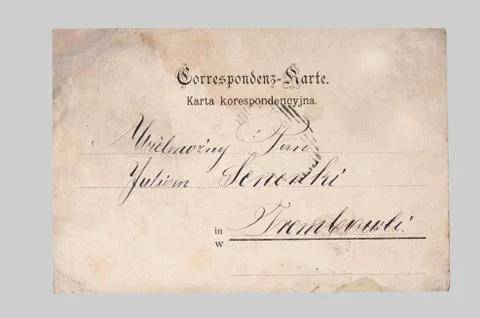 Correspondenz-Karte.
Karta korespondencyjna.
Wielmożny Pan
Julian
in
w Trembowli.